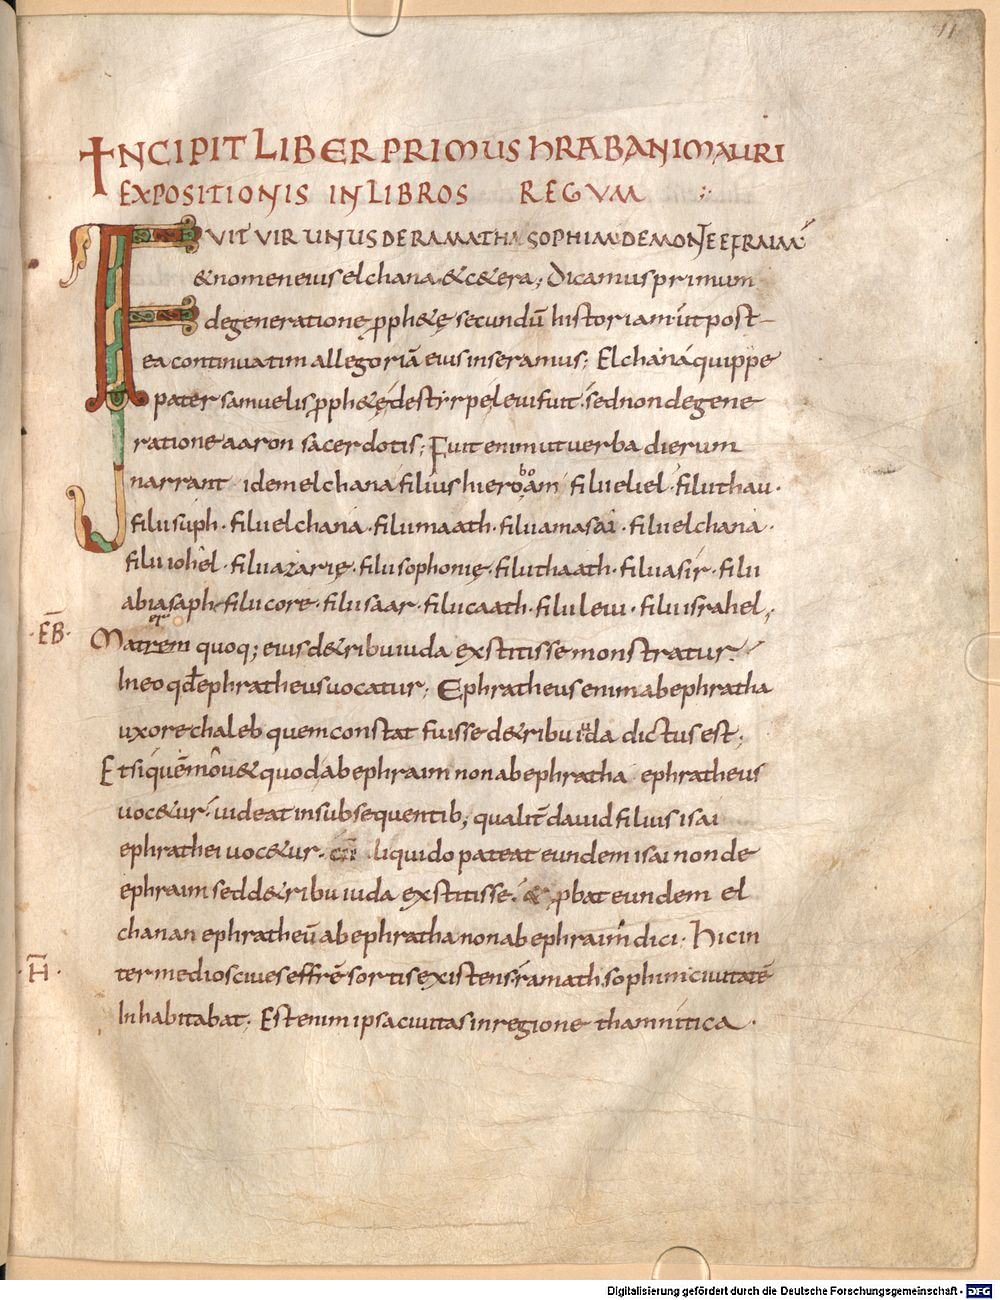 11
INCIPIT LIBER PRIMUS HRABANI MAURI
EXPOSITIONIS IN LIBROS REGUM
FUIT VIR UNUS DE RAMATHA SOPHIM DE MONTE EFRAIM
& nomen eius elchana & c&era; Dicamus primum
de generatione pph&ę secundū historiam ut post
ea continuatim allegoriā eius inseramus; Elchana quippe
pater samuelis pph&ę de styrpe leui fuit. sed non de gene
ratione aaron sacerdotis; Fuit enim ut uerba dierum
narrant idem elchana filius hieroboam filii eliel · filii thau ·
filii suph · filii elchana · filii maath · filii amasai · filii elchana ·
filii iohel · filii azarię · filii sophonię · filii thaath · filii asir · filii
abiasaph · filii core · filii saar · filii caath · filii leui · filii israhel;
EB
Matrem quoq; eius de tribu iuda exstitisse monstratur.
In eo qđ ephratheus uocatur; Ephratheus enim ab ephratha
uxore chaleb quem constat fuisse de tribu iuda dictus est;
Et si quē mou& quod ab ephraim non ab ephratha ephratheus
uoc&ur. uideat in subsequentib; qualit dauid filius isai
ephrathei uoc&ur. cū liquido pateat eundem isai non de
ephraim sed de tribu iuda exstitisse. & pbat eundem el
chanan ephratheū ab ephratha non ab ephraim dici · Hic in
H
ter medios ciues effrē sortis existens ramath sophim ciuitatē
Inhabitabat; Est enim ipsa ciuitas in regione thamnitica ·
Digitalisierung gefördert durch die Deutsche Forschungsgemeinschaft - DFG